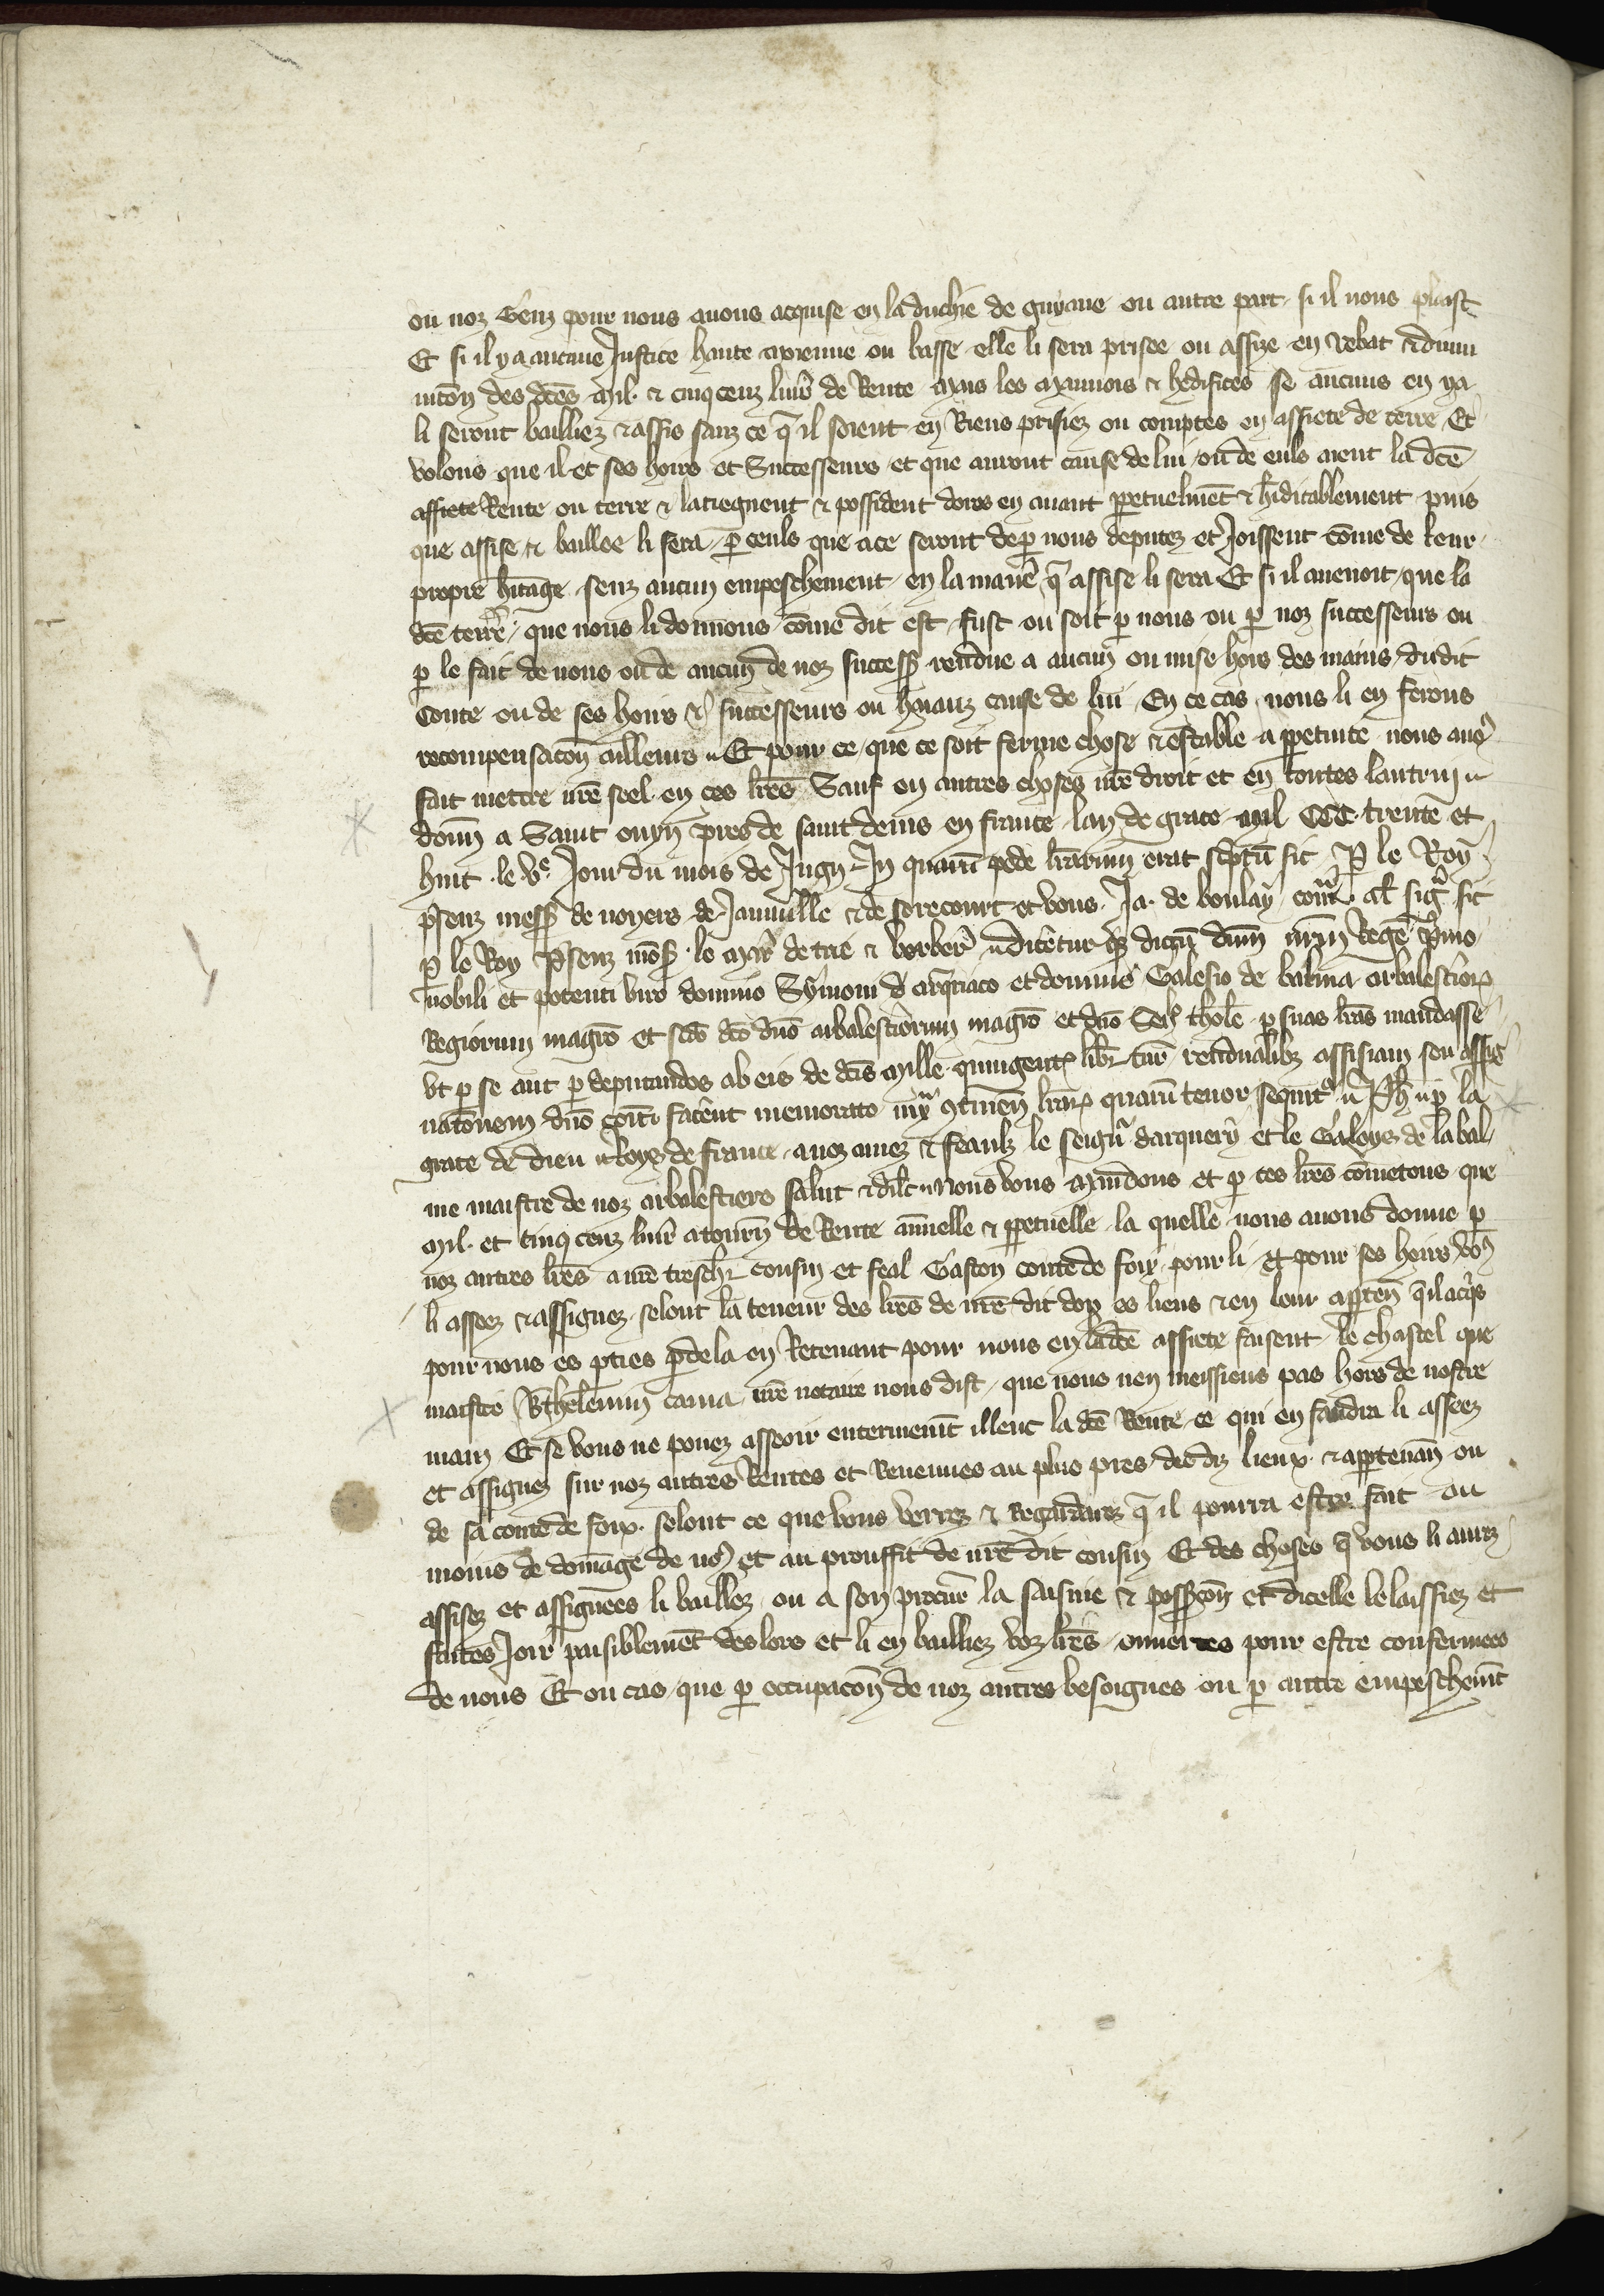 ou noz Genz pour nous auons acquise en la duchie de guyane ou autre part si il nous plaist
Et si il y a aucune Justice haute moyenne ou basse elle li sera prisee ou assize en rebat & dimi
nucōn des dc̄es Mil & cinq cenz liur̄ de Rente Mais les Manoirs & hedifices se aucuns en ya
li seront bailliez & assis sanz ce q̄ il soient en Riens prisiez ou comptes en assiete de terre Et
volons que il et ses hoirs et Successeurs et que auront cause de lui ou de euls aient la dc̄e
assiete Rente ou terre & la tiegnent & possident dores en auant ꝑpetuelmēt & h̄iditablement puis
que assise & baillee li sera ꝑ ceuls que a ce seront de ꝑ nous deputez et Joissent cōme de leur
propre h̄itage senz aucun empeschement en la manē q̄ assise li sera Et si il auenoit que la
dc̄e terre que nous li donnons cōme dit est fust ou soit ꝑ nous ou ꝑ noz successeurs ou
ꝑ le fait de nous ou de aucun de noz success̄ rendue a aucun ou mise hors des mains dudit
Conte ou de ses hoirs & successeurs ou haianz cause de lui En ce cas nous li en ferons
recompensacōn ailleurs Et pour ce que ce soit ferme chose & estable a ꝑpetuite nous auōs
fait mettre nr̄e seel en ces lr̄es Sauf en autres choses nr̄e droit et en toutes lautruy
donn̄ a Saint ouyn pres de saint denis en france lan de grace mil CCC trente et
huit le ve Jour du mois de Juyn In quarū pede lr̄arum erat sc̄ptū sic P̱ le Roy
p̄senz mess̄ de noyers de Januille & de sorecourt et vous Ja. de boulay
ꝑ le Roy P̄senz mōs̄ le Mar̄ de trie & berber̄ dicētur dictū dn̄m nr̄m Regē
nobili et potenti viro domino Symoni d arq̄riaco et domino Galesio de balma arbalestrioꝝ
Regiorum magr̄o et sc̄do dc̄o dn̄o arbalestrerum magr̄o et dn̄o Sen̄ thole ꝑ suas lr̄as mandasse
vt ꝑ se aut ꝑ deputandos ab eis de dc̄is Mille quingent̄ libr̄ tur̄ rendualibz assisiam seu assig
natōnem dn̄o comiti facent memorato ꝯtinen̄ lr̄aꝝ quarū tenor sequit̄ Ph̄ ꝑ la
grace de dieu Roys de france a noz amez & feaulz le seign̄r darquery et le Galoys de la bal
me maistre de noz arbalestiers salut & dil̄c Nous vous Mandons et ꝑ ces lr̄es cōmetons que
Mil et cinq cenz liur̄ a tourn̄ de Rente annuelle & ꝑpetuelle la quelle nous auons donne ꝑ
noz autres lr̄es a nr̄e tresch̄r cousin et feal Gaston conte de foix pour li et pour ses hoirs voꝰ
li asseez & assignez selont la teneur des lr̄es de nr̄e dit don es lieus & en leur aꝑten̄ q̄ il acq̄s
pour nous es ꝑties ꝑ dela en Retenant pour nous en ladc̄e assiete faisent le chastel que
maistre B̄thelemin Cama nr̄e notaire nous dist que nous nen meissiens pas hors de nostre
main Et se vous ne pouez asseoir entermenīt illeuc la dc̄e Rente ce qui en faudra li asseez
et assignez sur noz autres Rentes et Reuenues au plus pres desdiz lieux & aꝑtenan̄ ou
de sa conte de foix selont ce que vous verrez & Regarderez q̄ il pourra estre fait au
moins de domage de noꝰ et au prouffit de nr̄e dit cousin Et des choses q̄ vous li aurez
assises et assignees li baillez ou a son procur̄ la saisine & possess̄cōn et dicelle le laissiez et
faites Joir paisiblemēt des lors et li en bailliez voz lr̄es ouuertes pour estre confermees
de nous Et ou cas que ꝑ occupacōn de noz autres besoignes ou ꝑ autre empeschemt̄